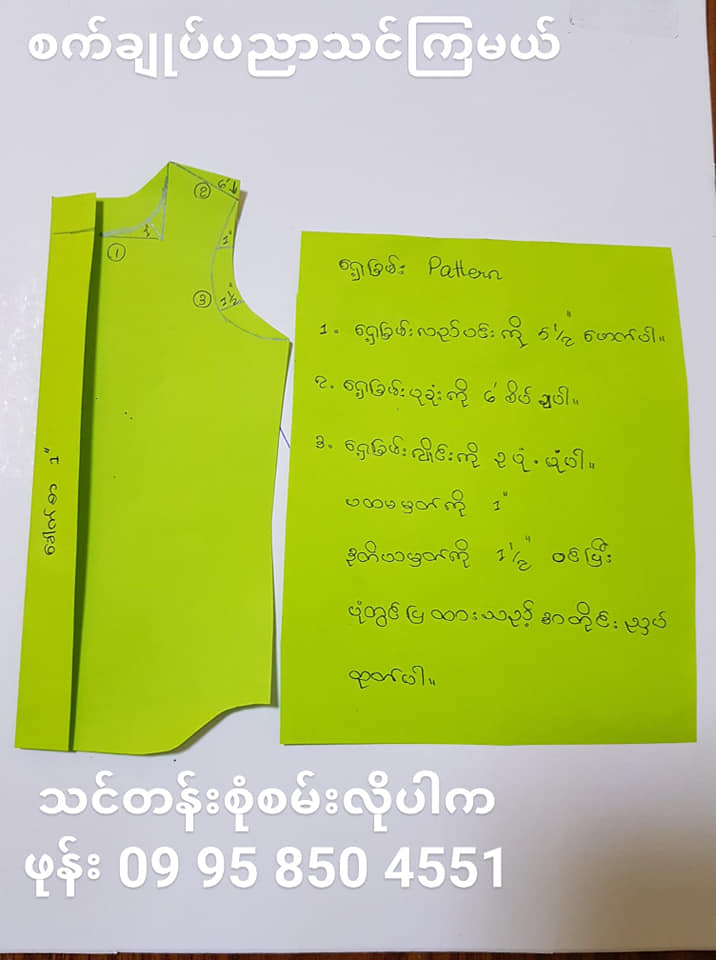 စက်ချုပ်ပညာသင်ကြမယ်
၂ ၆'
၁
1"
၃ 1½"
ခေါက်စာ 1"
ရှေ့ခြမ်း Pattern
၁. ရှေ့ခြမ်းလည်ပင်းကို ၅½" ဖောက်ပါ။
၂. ရှေ့ခြမ်းပုခုံးကို ၆' စိပ် ချပါ။
၃. ရှေ့ခြမ်းလှိုင်းကို ၃ ပုံ. ပုံပါ။
ပထမမှတ်ကို 1"
ဒုတိယမှတ်ကို 1½" ဝင်ပြီး
ပုံတွင်ပြထားသည့်အတိုင်း ညှပ်
ထုတ်ပါ။
သင်တန်းစုံစမ်းလိုပါက
ဖုန်း 09 95 850 4551